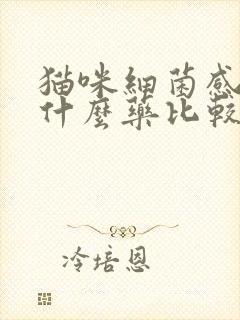 猫咪細菌感
什麼藥比較
冷培恩